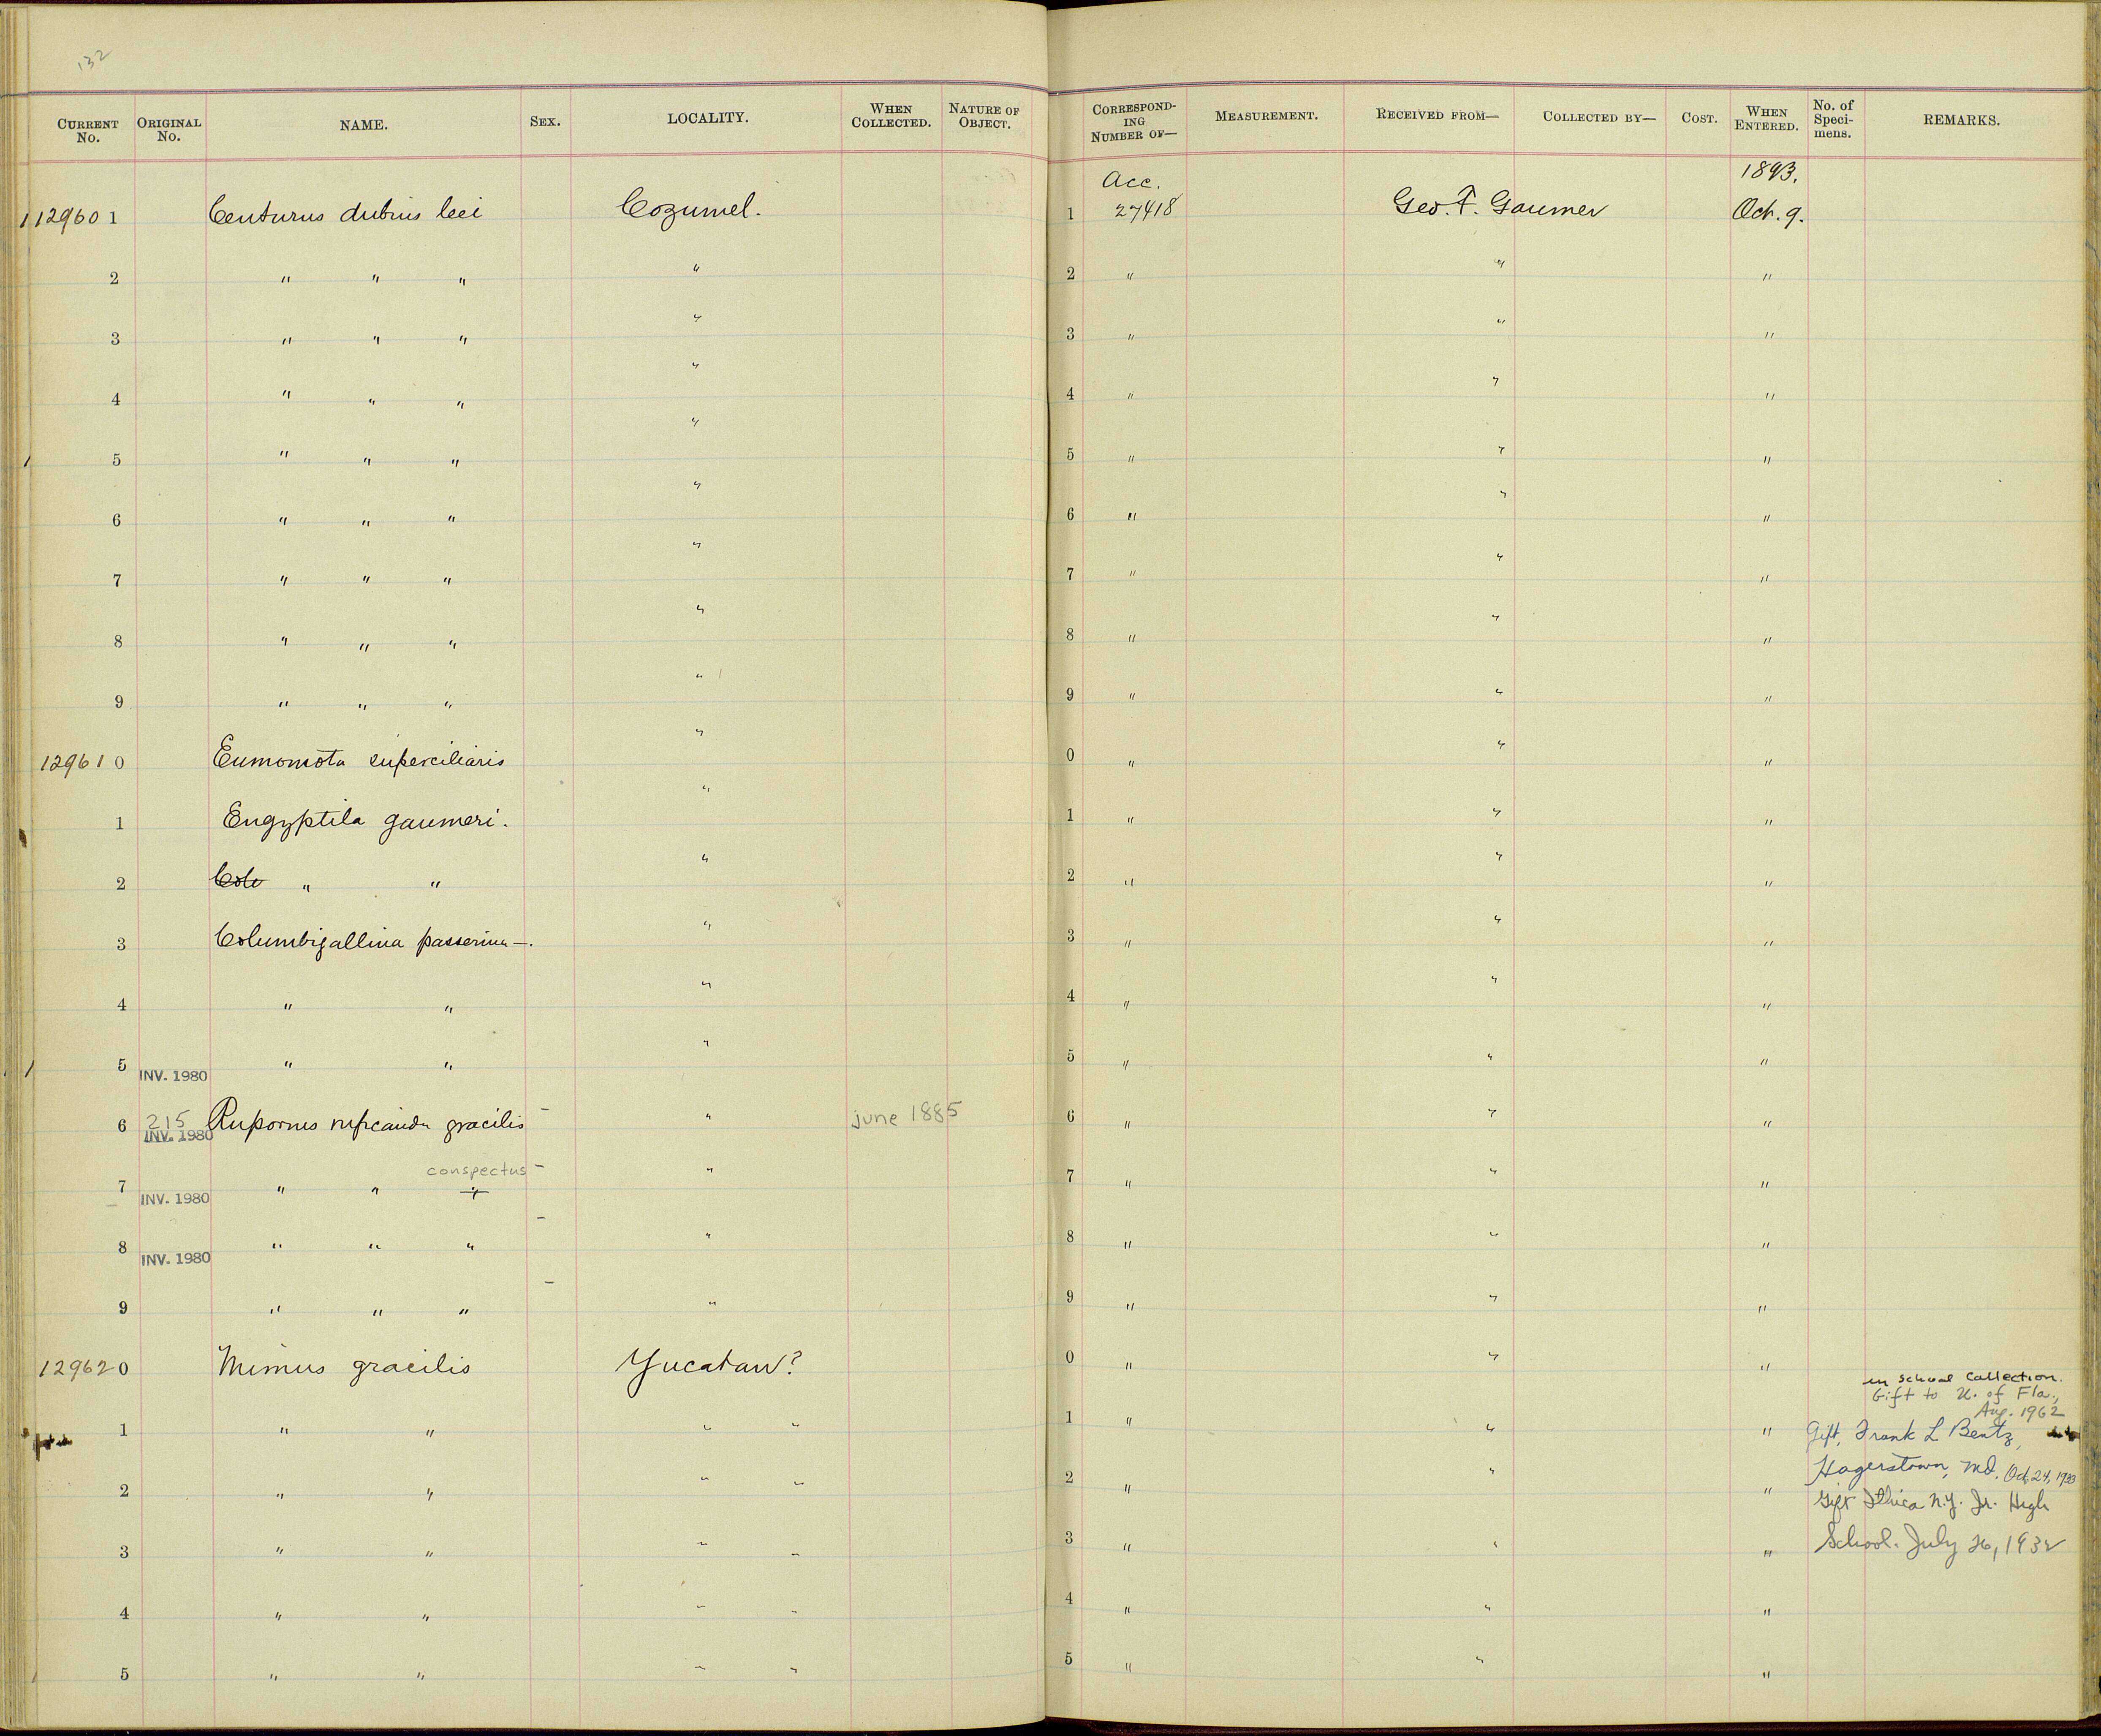 132
CURRENT No. ORIGINAL No. NAME. SEX. LOCALITY. WHEN COLLECTED. NATURE OF OBJECT. CORRESPONDING NUMBER OF— MEASUREMENT. RECEIVED FROM— COLLECTED BY— COST. WHEN ENTERED. No. of Specimens. REMARKS.
Acc. 1893.
129601 Centurus dubius leei Cozumel. 1 27418 Geo. F. Gaumer Oct. 9.
2 " " " " 2 " " "
3 " " " " 3 " " "
4 " " " " 4 " " "
5 " " " " 5 " " "
6 " " " " 6 " " "
7 " " " " 7 " " "
8 " " " " 8 " " "
9 " " " " 9 " " "
129610 Eumomota superciliaris " 0 " " "
1 Engyptila gaumeri. " 1 " " "
2 Col " " " 2 " " "
3 Columbigallina passerina —. " 3 " " "
4 " " " 4 " " "
5 INV. 1980 " " " 5 " " "
6 215 INV. 1980 Rupornis ruficauda gracilis - " june 1885 6 " " "
conspectus -
7 INV. 1980 " " " " 7 " " "
8 INV. 1980 " " " - " 8 " " "
9 " " " - " 9 " " "
129620 Mimus gracilis Yucatan? 0 " " "
in School Collection.
Gift to U. of Fla.,
Aug. 1962
1 " " " " 1 " " " Gift, Frank L Bentz,
Hagerstown, Md. Oct. 24, 1933
2 " " " " 2 " " "
Gift Ithica N.Y. Jr. High
3 " " " " 3 " " " School. July 26, 1932
4 " " " " 4 " " "
5 " " " " 5 " " "